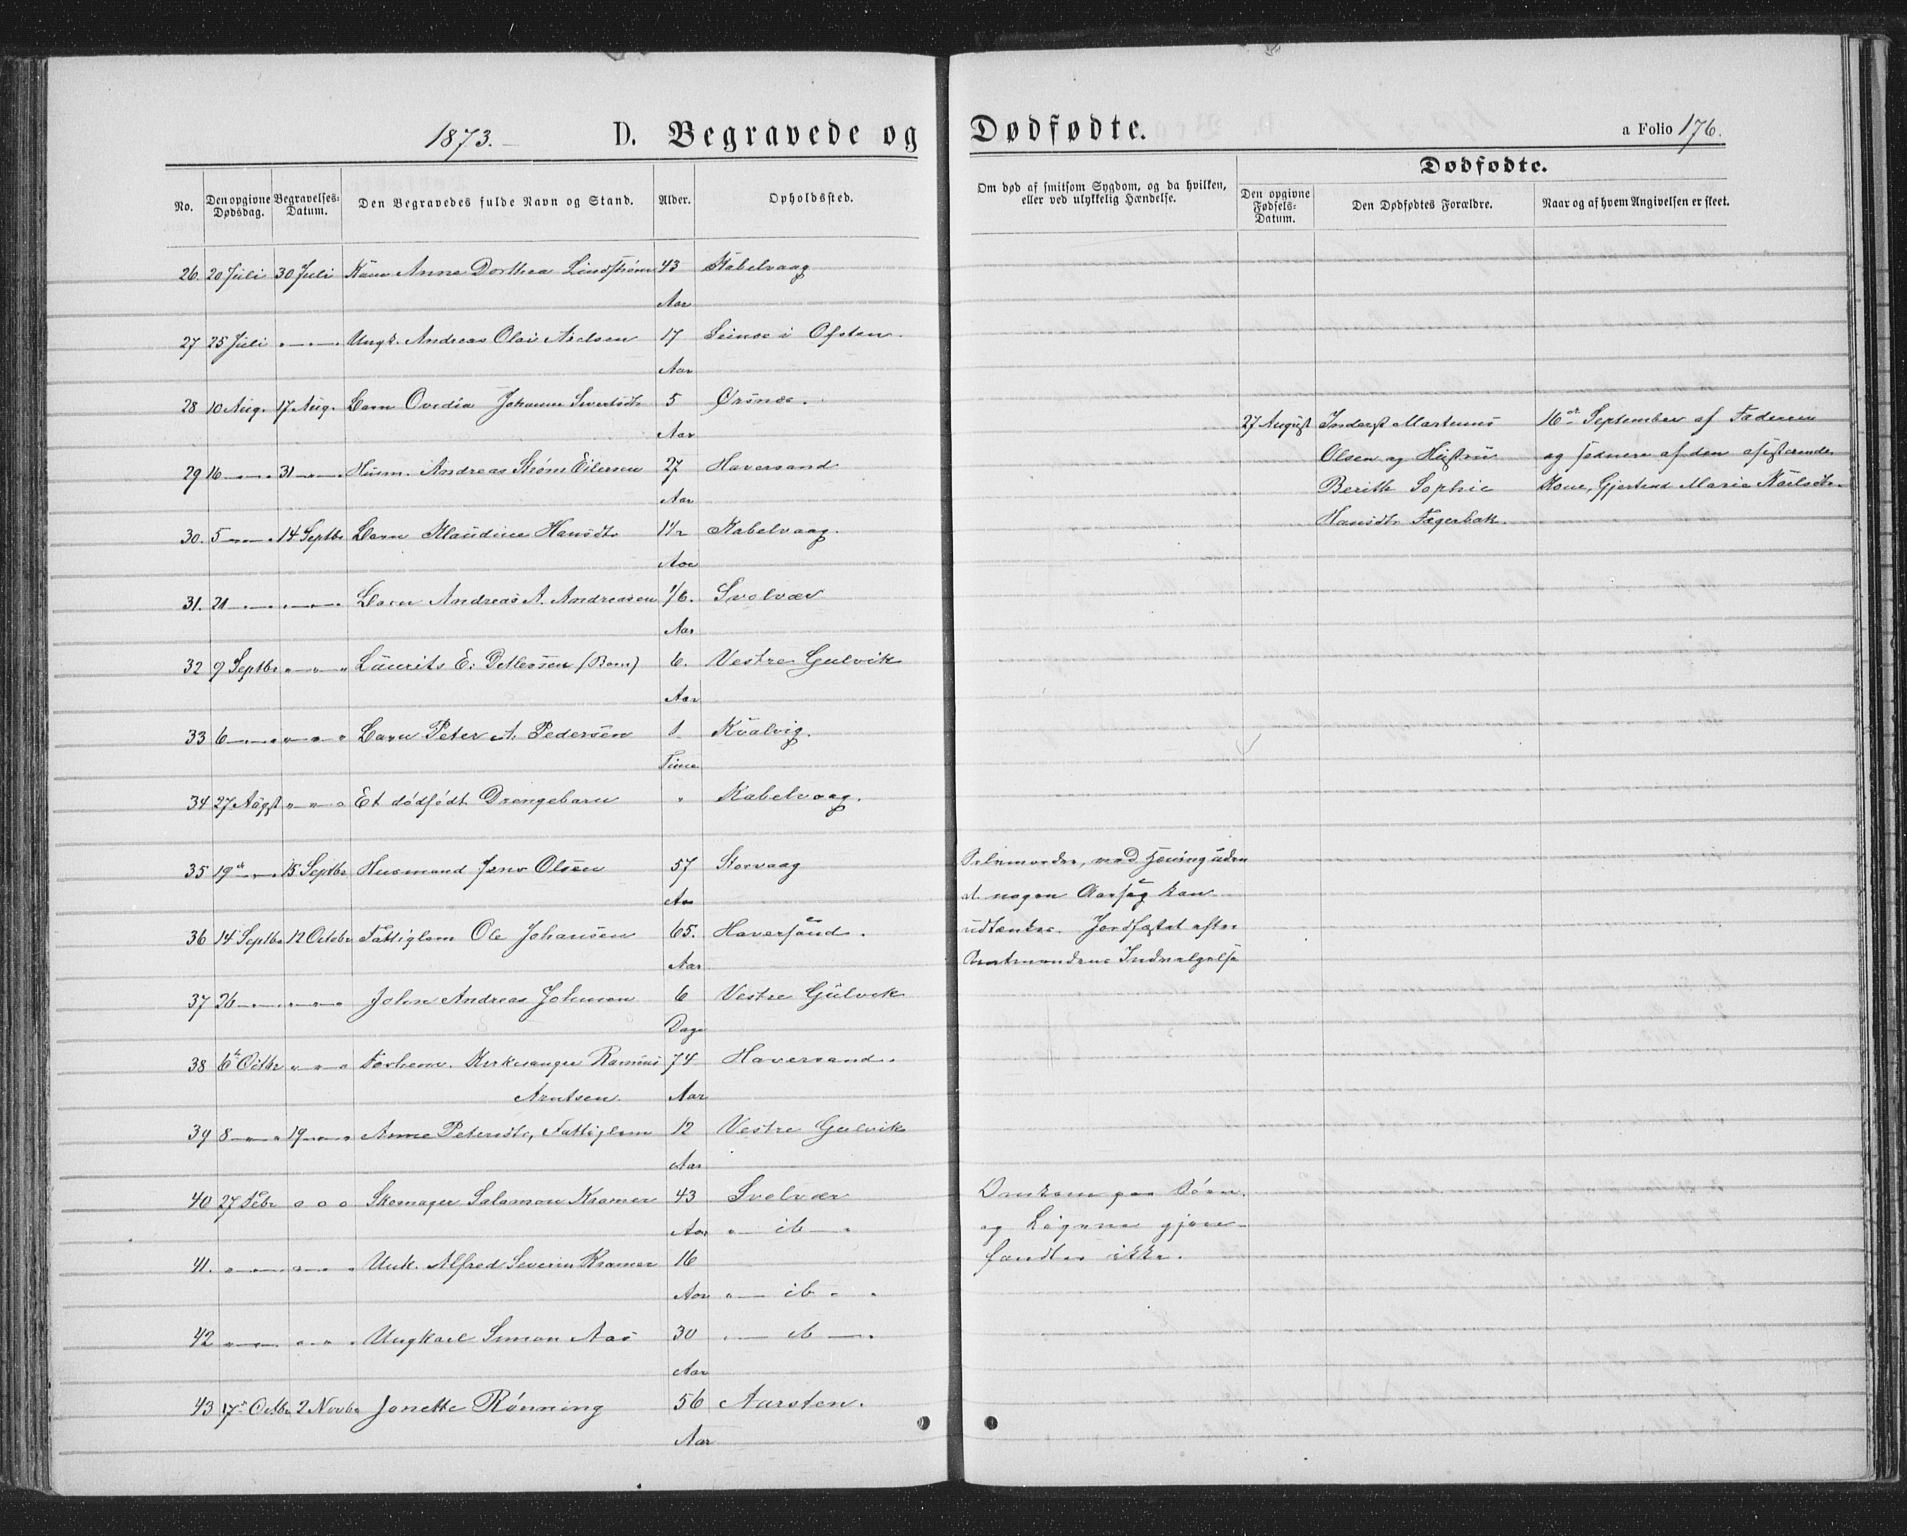 1873. D. Begravede og Dødfødte. a Folio 176.
Dødfødte.
No. Den opgivne Dødsdag. Begravelses-Datum. Den Begravedes fulde Navn og Stand. Alder. Opholdssted. Om død af smitsom Sygdom, og da hvilken, eller ved ulykkelig Hændelse. Den opgivne Fødsels-Datum. Den Dødfødtes Forældre. Naar og af hvem Angivelsen er skeet.
26. 20 Juli 30 Juli Kone Anne Dorthea Lindstrøm 43 Kabelvaag
Aar
27 25 Juli " — " — " Ungk. Andreas Olai 17 i Ofoten.
Aar
28 10 Aug. 17 Aug. Barn Ovedia Johanne Sivertsdt. 5 Ørsnæs.
Aar
27 August Inderst Martinus 16de September af Faderen
29 16 — " — 31 — " — Husm. Andreas Strøm Eilersen 27 Haversand
Olsen og Hustru og senere af den assisterende
Aar
Berith Sophie Kone, Gjertrud Maria Nielsdt.
30. 5 — " — 14 Septbr Barn Klaudine Hansdt. 1 1/2 Kabelvaag.
Hansdt. Fagerbak.
Aar
31. 21 — " — " — " — Barn Andreas A. Andreasen 1/6. Svolvær
Aar
32 9 Septbr " — " — " Laurits E. Detlefsen (Barn) 6. Vestre Gulvik
Aar
33 6 — " — " — " — " Barn Peter A. Pedersen 1 Kvalvig.
Time
34 27 Augst " — " — " Et dødfødt Drengebarn " Kabelvaag.
35 19de — " — 15 Septbr Husmand Jens Olsen 57 Storvaag
Selvmorder, ved Hængning uden
Aar
at nogen Aarsag kan
36 14 Septbr 12 Octobr Fattiglem Ole Johansen 65. Haversand.
udtænkes. Jordfæstet efter
Aar
Amtmandens
37 26 — " — " — " — John Andreas Johnsen 6 Vestre Gulvik
Dage
38 6te Octbr " — " — " Forhenv. Kirkesanger Rasmus 74 Haversand.
Arntsen. Aar
39 8 — " — " 19 — " — " Anne Petersdt., Fattiglem 12 Vestre Gulvik
Aar
40 27 Febr " " " Skomager Salamon Kramer 43 Svolvær Omkom paa Søen
Aar " — ib — " og Ligene
41. " — " — " — " Unk. Alfred Severin Kramer 16 fandtes ikke.
Aar " — ib " "
42 " — " — " — " Ungkarl Simon Aas 30 " — ib — "
Aar
43 17de Octbr 2 Novbr Jonette Rønning 56 Aursten.
Aar